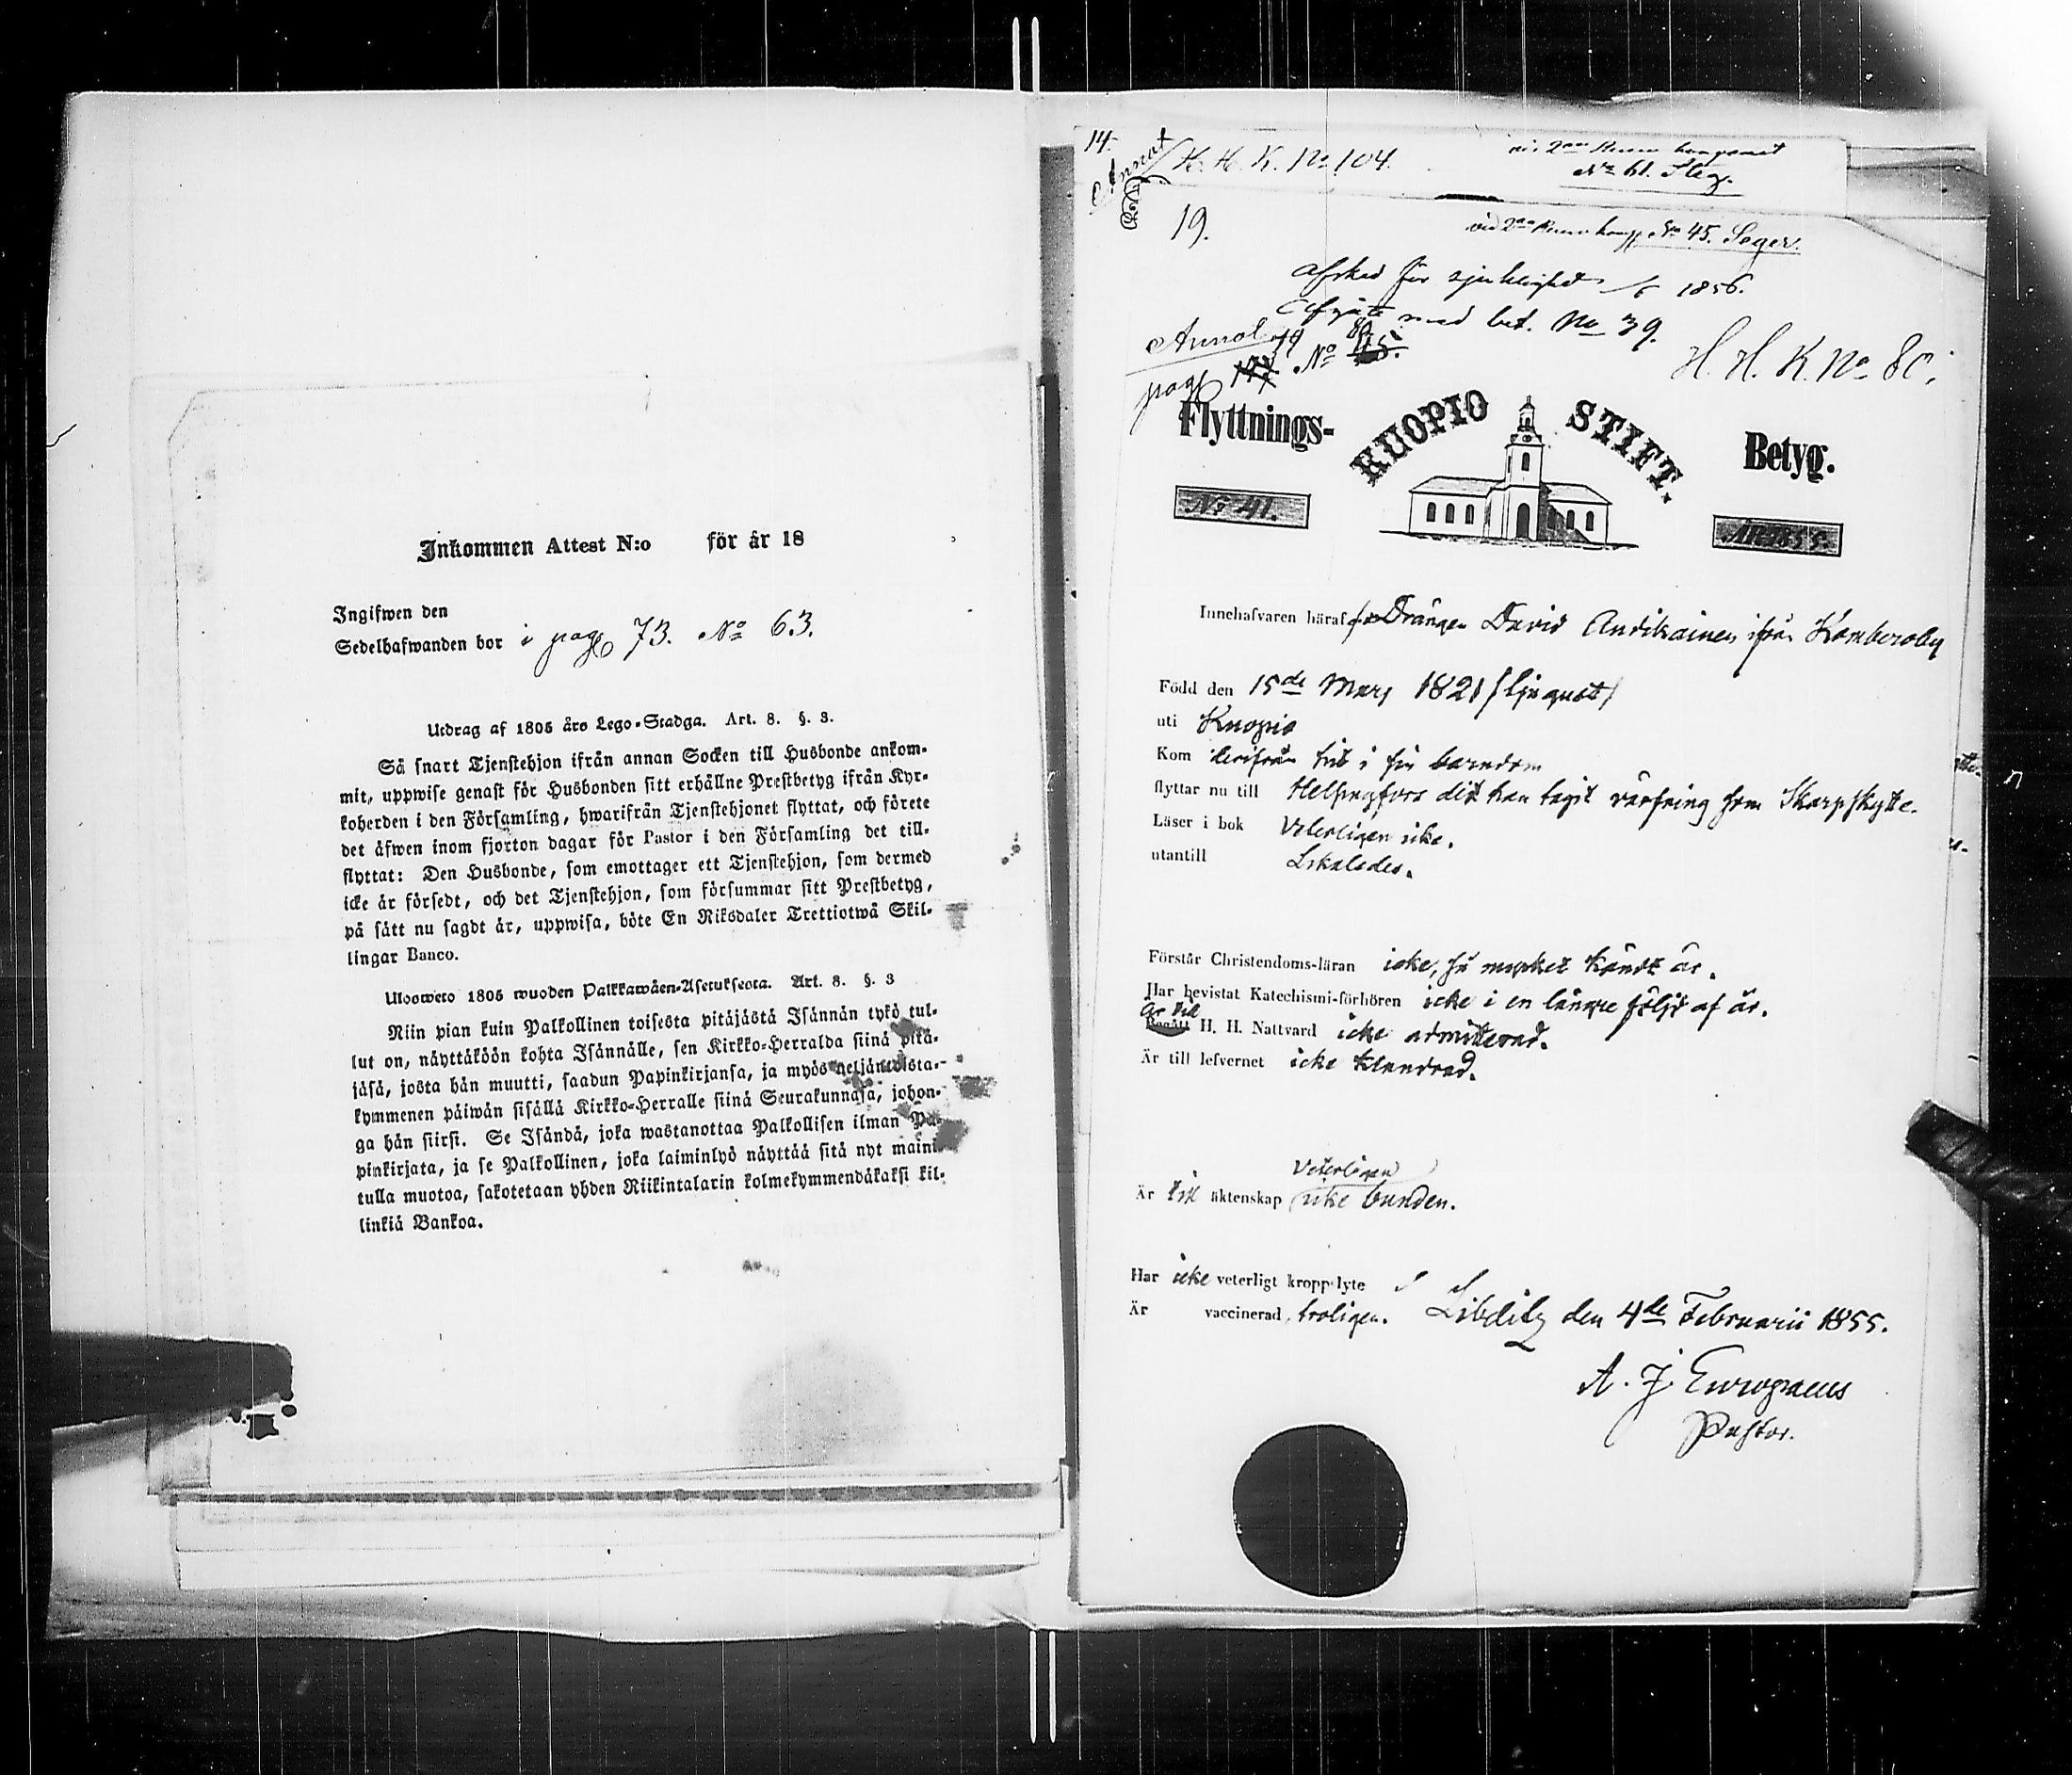 Inkommen Attest N:o för år 18
Ingifwen den
Sedelhafwanden bor i pag 73. No 63.
Utdrag af 1805 års Lego-Stadga. Art. 8. §. 3.
Så snart Tjenstehjon ifrån annan Socken till Husbonde ankom-
mit, uppwise genast för Husbonden sitt erhållne Prestbetyg ifrån Kyr-
koherden i den Församling, hwarifrån Tjenstehjonet flyttat, och förete
det äfwen inom fjorton dagar för Pastor i den Församling det till-
flyttat: Den Husbonde, som emottager ett Tjenstehjon, som dermed
icke är försedt, och det Tjenstehjon, som försummar sitt Prestbetyg,
på sätt nu sagdt är, uppwisa, böte En Riksdaler Trettiotwå Skil-
lingar Banco.
Ulosweto 1805 wuoden Palkkawäen-Asetuksesta. Art. 8. §. 3
Niin pian kuin Palkollinen toisesta pitäjästä Isännän tykö tul-
lut on, näyttäköön kohta Isännälle, sen Kirkko-Herralda siinä pitä-
jäsä, josta hän muutti, saadun Papinkirjansa, ja myös neljäntoista-
kymmenen päiwän sisällä Kirkko-Herralle siinä Seurakunnasa, johon-
ga hän siirsi. Se Isändä, joka wastanottaa Palkollisen ilman Pa-
pinkirjata, ja se Palkollinen, joka laiminlyö näyttää sitä nyt maini-
tulla muotoa, sakotetaan yhden Riikintalarin kolmekymmendäkaksi kil-
linkiä Bankoa.
14.
Annot
H. H. K. No 104.
No 61. Steg.
19.
vid 2dra komp. No 45. Seger.
Afsked för sjuklighet 1856.
med bet. No 39.
Annot 14 80
pag 177 No 45.
H. H. K. No 80.
Flyttnings- KUOPIO STIFT. Betyg.
No 41.
År 1855.
Innehafvaren häraf Drängen David Andikainen ifrån Komberoby
Född den 15de Mars 1821
uti Kuopio
Kom derifrån hit i sin barndom
flyttar nu till Helsingfors dit han tagit värfning som Skarpskytte.
Läser i bok Veterligen icke.
utantill Likaledes.
Förstår Christendoms-läran icke, så mycket kändt är.
Har bevistat Katechismi-förhören icke i en längre följd af år.
Är till
Begått H. H. Nattvard icke admitterad.
Är till lefvernet icke klandrad.
Veterligen
Är till äktenskap icke bunden.
Har icke veterligt kroppslyte
Är vaccinerad, troligen. Libelitz den 4de Februarii 1855.
A. J. Europaeus
Pastor.